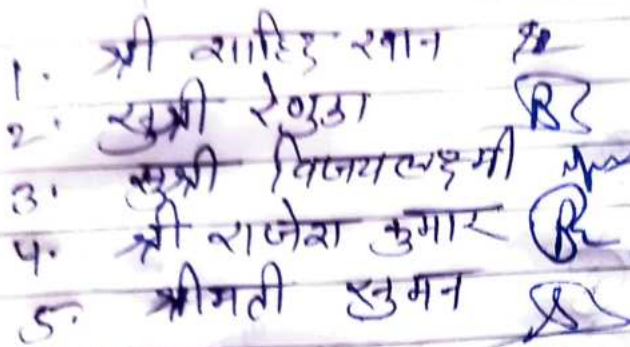 1. श्री शाहिद खान
2. सुश्री रेणुका
3. सुश्री विजयलक्ष्मी
4. श्री राजेश कुमार
5. श्रीमती सुमन